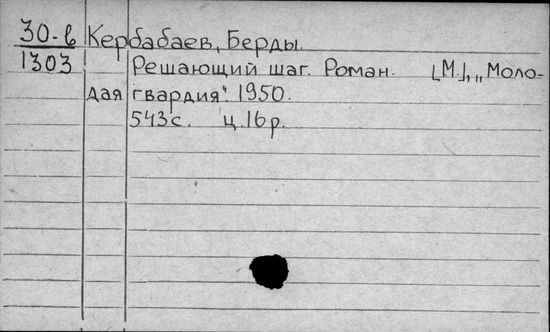 30-в Кербабаев, Берды.
1303 Решающий шаг. Роман. [М.], „Моло-
дая гвардия". 1950.
543 с. ц. 16 р.